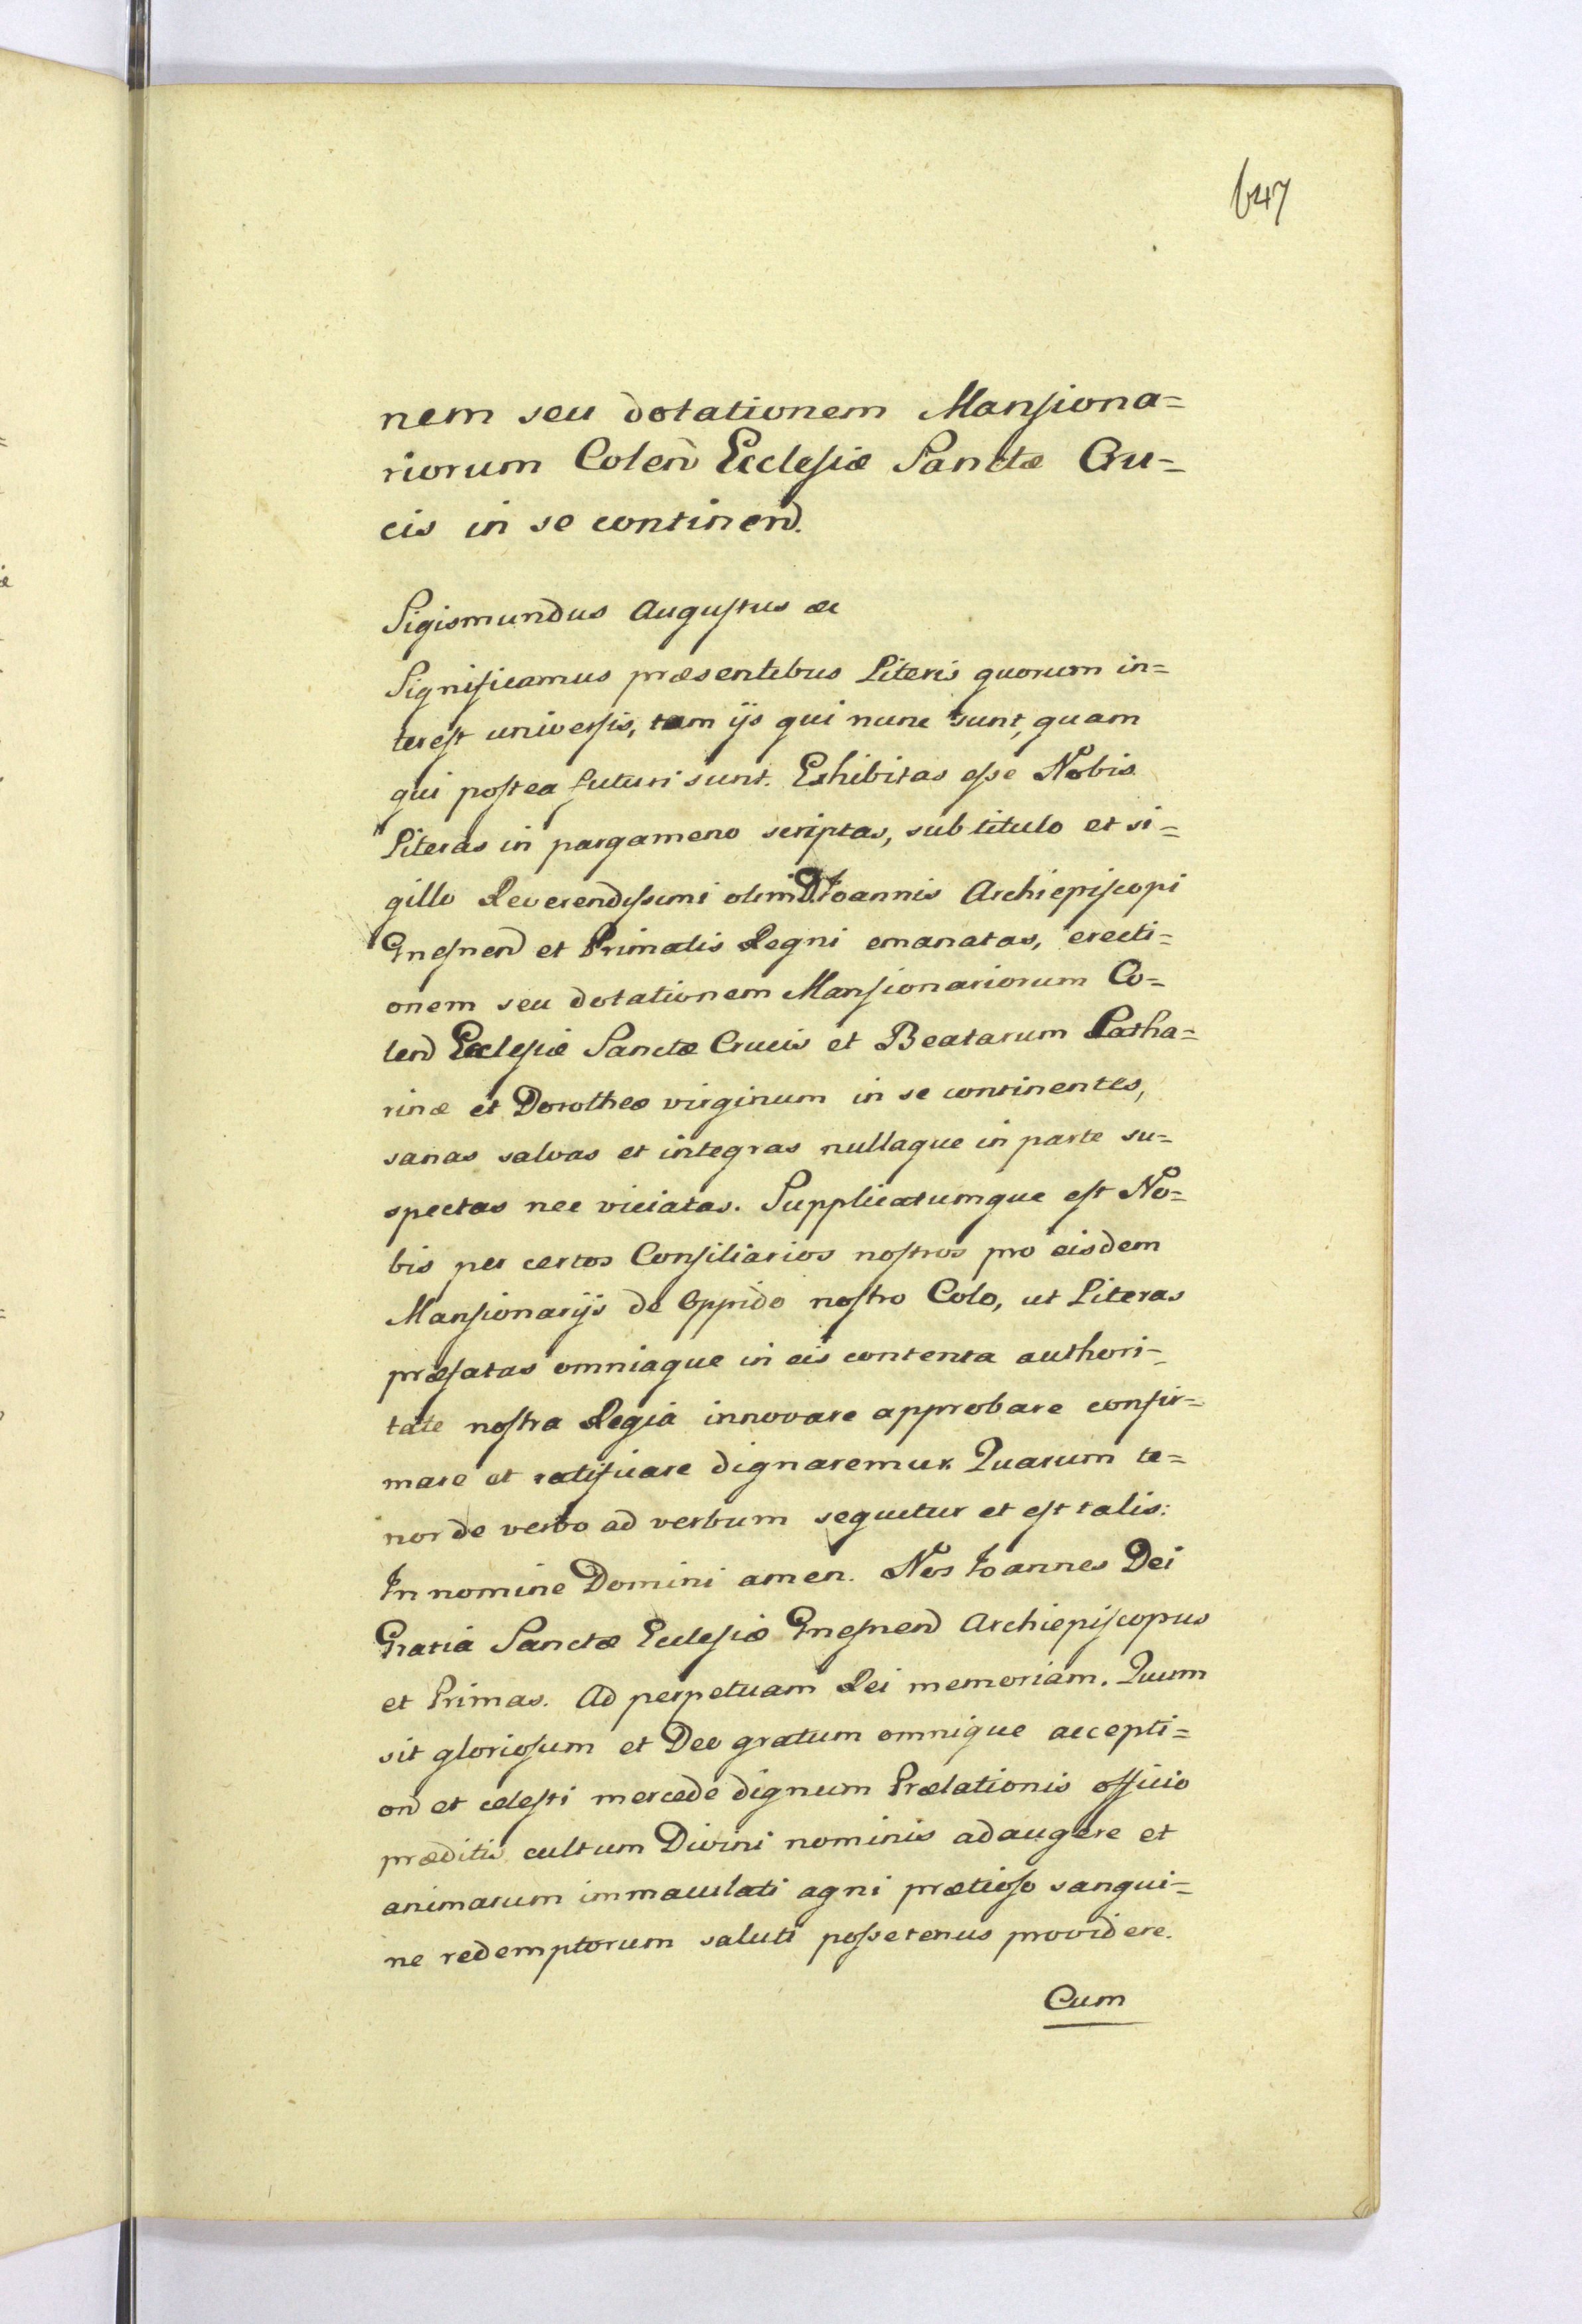 647
nem seu dotationem Mansiona=
riorum Colen Ecclesiæ Sanctæ Cru=
cis in se continen.
Sigismundus Augustus &c
Significamus præsentibus Literis quorum in=
terest universis, tam ijs qui nunc sunt, quam
qui postea futuri sunt. Exhibitas esse Nobis
Literas in pargameno scriptas, sub titulo et si=
gillo Reverendissimi olim D. Ioannis Archiepiscopi
Gnesnen et Primatis Regni emanatas, erecti=
onem seu dotationem Mansionariorum Co=
len Ecclesiæ Sanctæ Crucis et Beatarum Catha=
rinæ et Dorotheæ virginum in se continentes,
sanas salvas et integras nullaque in parte su=
spectas nec viciatas. Supplicatumque est No=
bis per certos Consiliarios nostros pro eisdem
Mansionarijs de Oppido nostro Colo, ut Literas
præfatas omniaque in eis contenta authori=
tate nostra Regia innovare approbare confir=
mare et ratificare dignaremur. Quarum te=
nor de verbo ad verbum sequitur et est talis:
In nomine Domini amen. Nos Ioannes Dei
Gratia Sanctæ Ecclesiæ Gnesnen Archiepiscopus
et Primas. Ad perpetuam Rei memoriam. Quum
sit gloriosum et Deo gratum omnique accepti=
on et celesti mercede dignum Prælationis officio
præditis cultum Divini nominis adaugere et
animarum immaculati agni prætioso sangui=
ne redemptorum saluti possetenus providere.
Cum